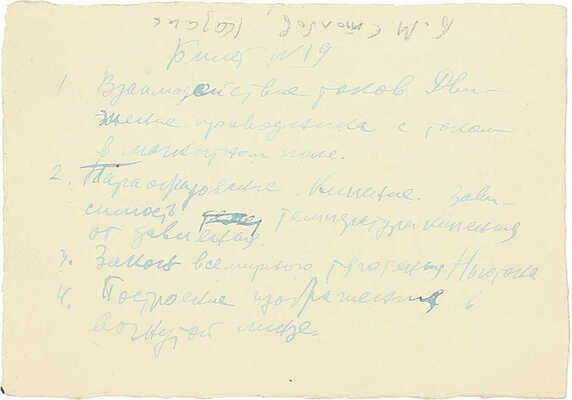 Билет №19
1. Взаимодействие токов. Дви-
жение проводника с током
в магнитном поле.
2. Парообразование. Кипение. Зави-
симость температуры кипения
от давления.
3. Закон всемирного тяготения Ньютона
4. Построение изображения в
вогнутой линзе.